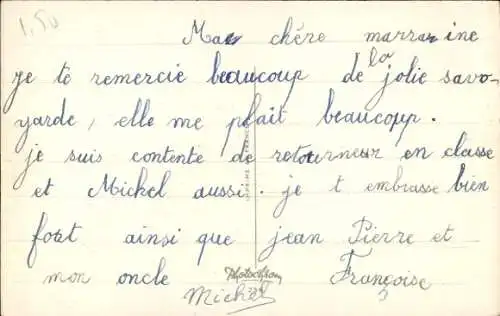 1,50
Ma chère marraine
je te remercie beaucoup de la jolie savo-
yarde, elle me plait beaucoup.
je suis contente de retourneur en classe
et Mickel aussi. je t embrasse bien
fort ainsi que jean Pierre et
mon oncle Françoise
Michel